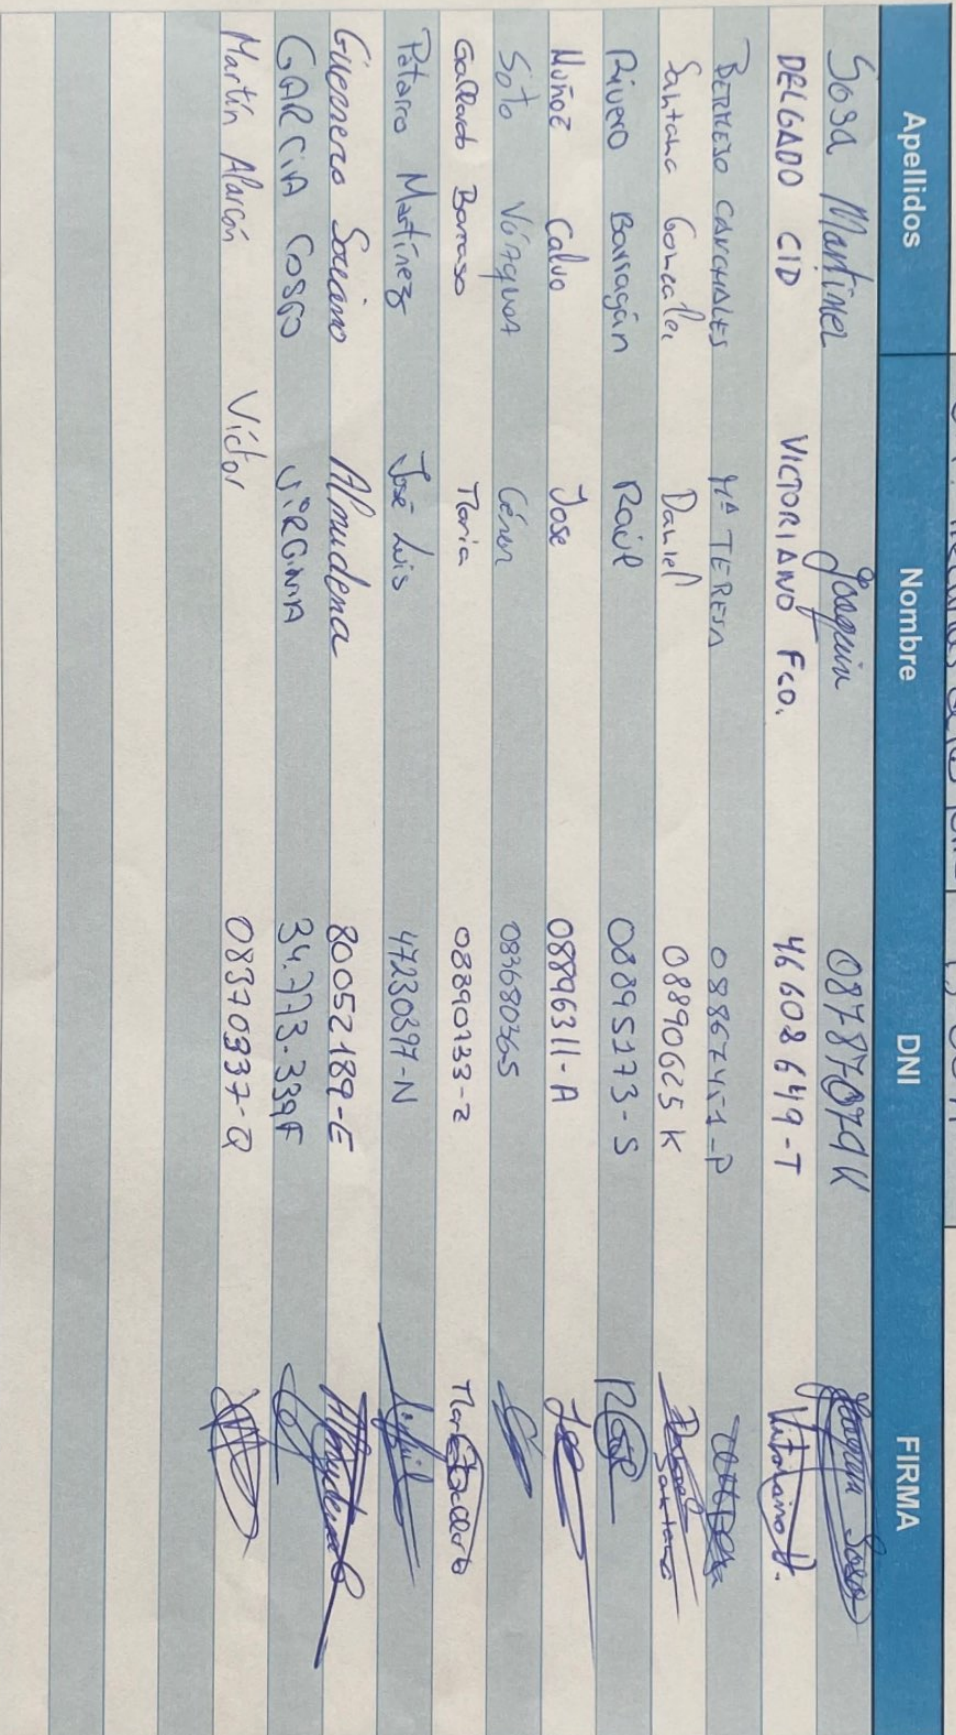 Apellidos Nombre DNI FIRMA
Sosa Martinez Joaquin 08787079K Joaquin Sosa
DELGADO CID VICTORIANO Fco. 46608649-T Victoriano D.
BERMEJO CARCHALES Mª TERESA 08867451-P
Santana González Daniel 08890625K Daniel Santana
Rivero Barragán Raúl 08895173-S
Muñoz Calvo Jose 08896311-A Jose
Soto Vázquez 08368036S
Gallardo Barroso Maria 08890733-Z
Pataro Martínez José Luis 47230397-N
Guerrero Soriano Almudena 80052189-E Almudena
GARCIA COSGO VIRGINIA 34.773.339F
Martín Alarcón Víctor 08370337-Q